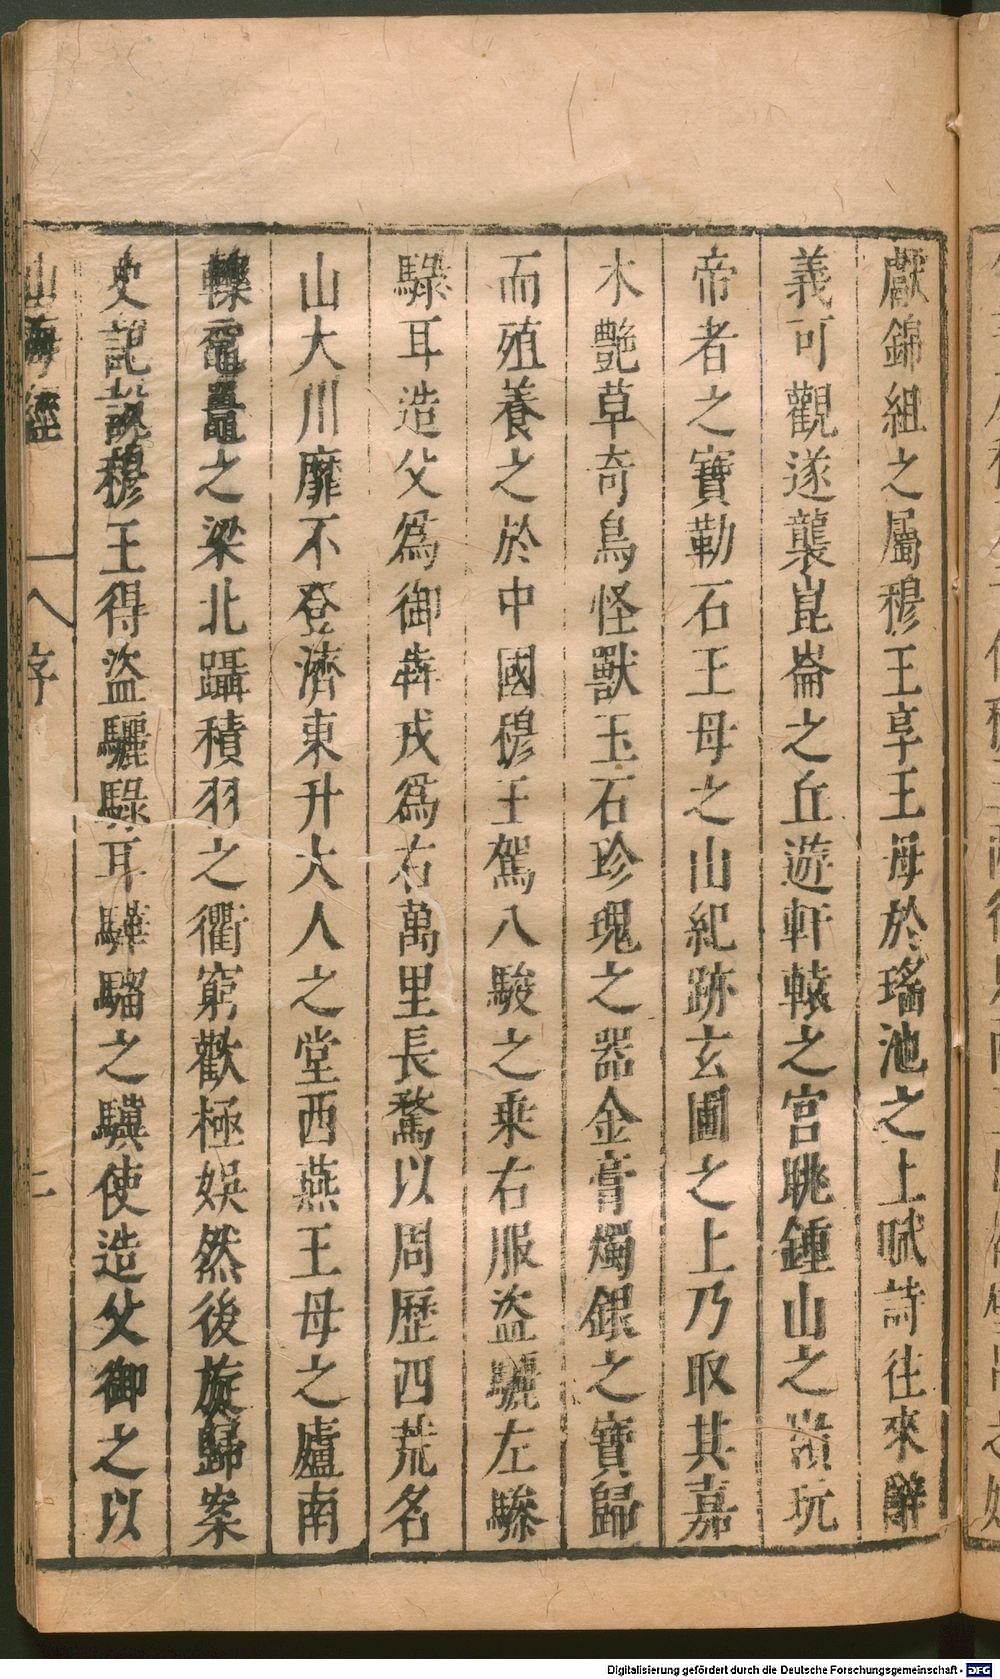 獻錦組之屬穆王享王母於瑤池之上賦詩往來辭
義可觀遂襲崑崙之丘遊軒轅之宮眺鍾山之嶺玩
帝者之寶勒石王母之山紀跡玄圃之上乃取其嘉
木艷草奇鳥怪獸玉石珍瑰之器金膏燭銀之寶歸
而殖養之於中國穆王駕八駿之乗右服盜驪左驂
騄耳造父爲御犇戎爲右萬里長騖以周歷四荒名
山大川靡不登濟東升大人之堂西燕王母之廬南
轢黿鼉之梁北躡積羽之衢窮歡極娛然後旋歸案
史記說穆王得盜驪騄耳驊騮之驥使造父御之以
山海經
序
Digitalisierung gefördert durch die Deutsche Forschungsgemeinschaft - DFG